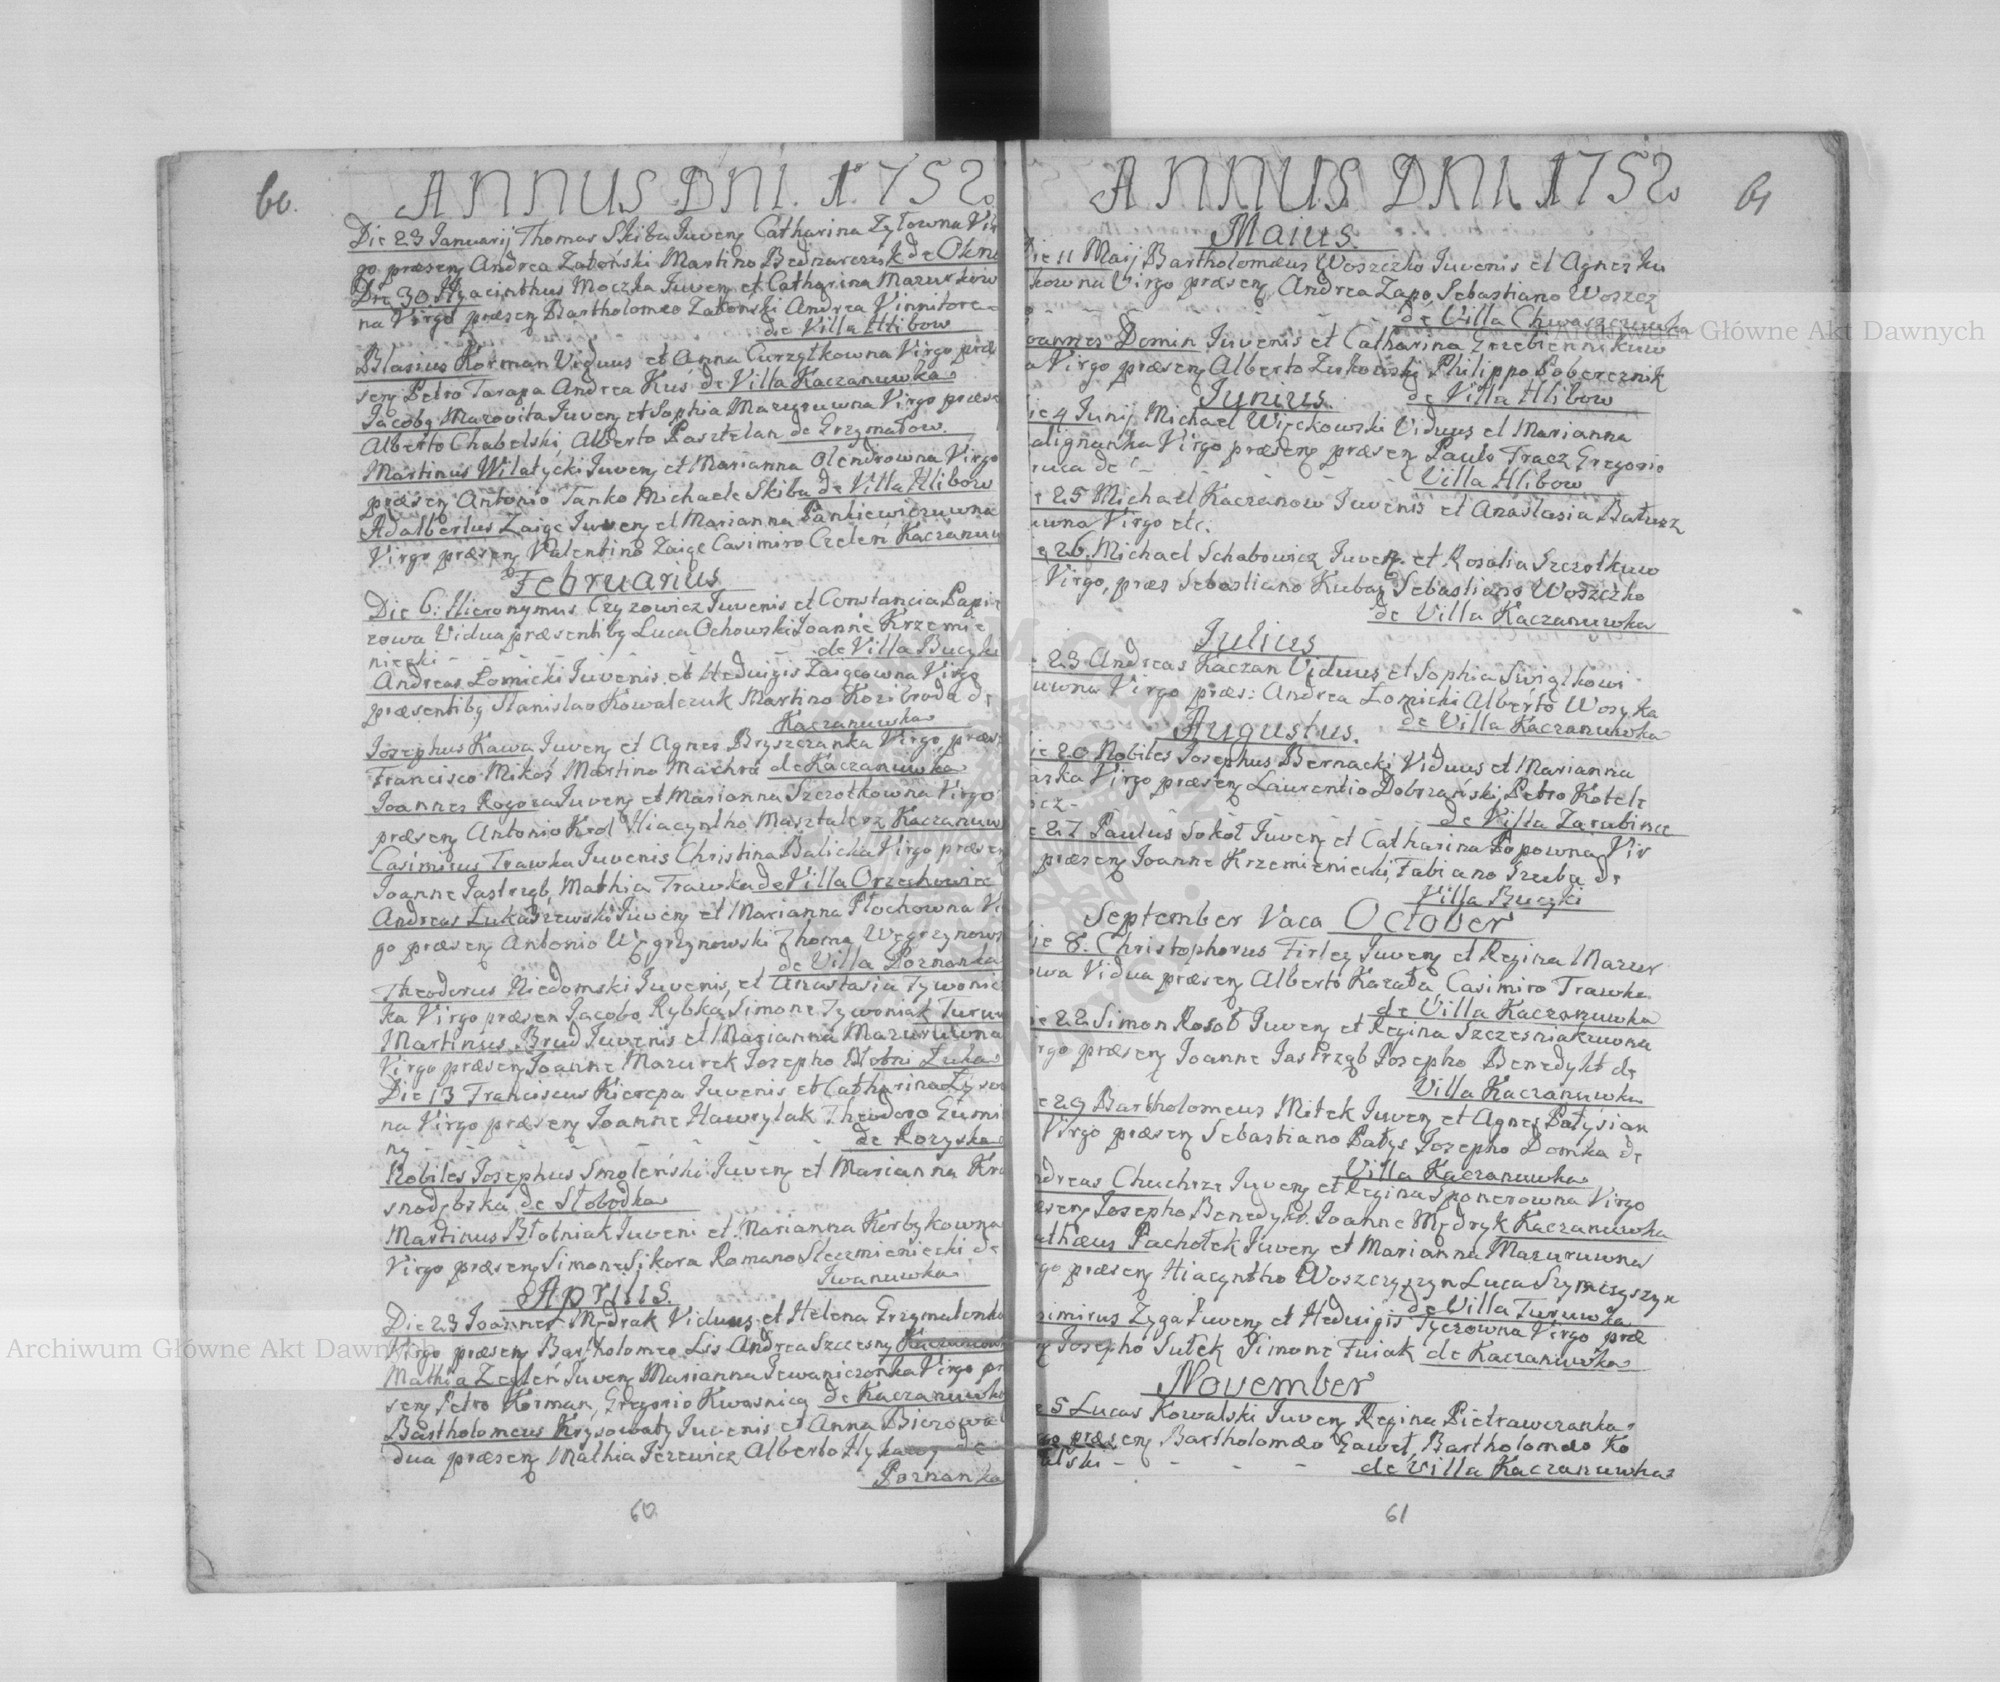 60.
ANNUS DNI. 1752.
Die 23 Januarij Thomas Skiba Juveng Catharina Zytowna Vir
go præseng Andrea Zatoński Martino Bednarczuk de Okno
Die 30 Hyacinthus Moczka Juveng et Catharina Mazurkow
na Virgo præseng Bartholomeo Zatoński Andrea Vinnitore -
de Villa Hlibow
Blasius Korman Viduus et Anna Curzytkowna Virgo præ
seng Petro Tarapa Andrea Kuś de Villa Kaczanuwka
Jacobg Mazovita Juveng et Sophia Mazuruwna Virgo præse
Alberto Chabelski, Alberto Pasztelan de Grzymałow.
Martinus Wilatycki Juveng et Marianna Olendrowna Virgo
præseng Antonio Tanko Michaele Skiba de Villa Hlibow
Adalbertus Zaigc Juveng et Marianna Pankiewiczuwna
Virgo præseng Valentino Zaigc Casimiro Czeleń Kaczanuw
Februarius
Die 6. Hieronymus Czyzowicz Juvenis et Constancia Papie
rowa Vidua præsentibg Luca Ochowski Joanne Krzemie
niecki - - - - - de Villa Buczki
Andreas Łomicki Juvenis et Hedvigis Zaigcowna Virgo
præsentibg Stanislao Kowalczuk Martino Kozibroda de
Kaczanuwka
Josephus Kawa Juveng et Agnes Bryszczanka Virgo præse
Francisco Mikoś Martino Machra de Kaczanuwka
Joannes Rogoza Juveng et Marianna Szczotkowna Virgo
præseng Antonio Krol Hiacyntho Masztalerz Kaczanuw
Casimirus Trawka Juvenis Christina Balicka Virgo præseng
Joanne Jastrzgb, Mathia Trawka de Villa Orzechowiec
Andreas Łukaszewski Juveng et Marianna Płochowna Vi
go præseng Antonio Węgrzynowski Thoma Węgrzynows
de Villa Poznanka
Theodorus Niedomski Juvenis, et Anastasia Tywonie
ka Virgo præsen Jacobo Rybka, Simone Tywoniak Turuw
Martinus Brud Juvenis et Marianna Mazuruwna
Virgo præseng Joanne Mazurek Josepho Błotni Łuka
Die 13 Franciscus Kierepa Juvenis et Catharina Łyso
na Virgo præseng Joanne Hawrylak Theodoro Gumi
ny - - - - - - de Rozyska
Nobiles Josephus Smoleński Juveng et Marianna Kra
snodębska de Słobodka
Martinus Błotniak Juveni et Marianna Korbykowna
Virgo præseng Simone Sikora Romano Sleczmieniecki de
Iwanuwka
Aprilis.
Die 23 Joannes Mędrak Viduus et Helena Grzymalonka
Virgo præseng Bartholomeo Lis Andrea Szczesny Kaczanow
Mathia Zegleń Juveng Marianna Iewaniczonka Virgo præ
seng Petro Korman, Gregorio Kwasnica de Kaczanuwka
Bartholomeus Krysowaty Juvenis et Anna Bierowa
dua præseng Mathia Jezewicz Alberto de
Poznanka
60
61
ANNUS DNI. 1752.
Maius.
Die 11 Maij Bartholomæus Woszczko Juvenis et Agnes Ku
kowna Virgo præseng Andrea Zapo Sebastiano Woszcz
de Villa Chwaszczuwka
oannes Domin Juvenis et Catharina Zrzebiennikuw
a Virgo præseng Alberto Łukowski Philippo Poberecznik
Junius. de Villa Hlibow
ie 4 Junij Michael Więckowski Viduus et Marianna
alignanka Virgo præseng præseng Paulo Tracz Gregorio
ruca de - - - - Villa Hlibow
e 25 Michael Kaczanow Juvenis et Anastasia Batusz
uwna Virgo etc.
e 26. Michael Schabowicz Juveng. et Rosalia Szczotkuw
Virgo, præs Sebastiano Kubag Sebastiano Woszczko
de Villa Kaczanuwka
Julius
23 Andreas Kaczan Viduus et Sophia Swigtkowi
uwna Virgo præs: Andrea Łomicki Alberto Wosyka
Augustus. de Villa Kaczanuwka
ie 20 Nobiles Josephus Bernacki Viduus et Marianna
arska Virgo præseng Laurentio Dobrzański, Petro Kotele
icz - - - - de Villa Zarubince
e 27 Paulus Sokoł Juveng et Catharina Popowna Vir
præseng Joanne Krzemieniecki, Fabiano Szuba de
Villa Buczki
September Vaca October
ie 8. Christophorus Firley Juveng et Regina Mazur
owa Vidua præseng Alberto Kazała Casimiro Trawka
de Villa Kaczanuwka
ie 22 Simon Rosoł Juveng et Regina Szczesniakuwna
rgo præseng Joanne Jastrząb Josepho Benedykt de
Villa Kaczanuwka
e 29 Bartholomeus Mitek Juveng et Agnes Patysian
Virgo præseng Sebastiano Patys Josepho Domka de
Villa Kaczanuwka
ndreas Chuchrze Juveng et Regina Sponerowna Virgo
æseng Josepho Benedykt Joanne Mędryk Kaczanuwka
athæus Pachołek Juveng et Marianna Mazuruwna
go præseng Hiacyntho Woszczyszyn Luca Szymczyszyn
de Villa Turuwka
simirus Zyga Juveng et Hedvigis Tyczowna Virgo præ
g Josepho Sutek Simone Fuiak de Kaczanuwka
November
e 5 Lucas Kowalski Juveng Regina Pietrawczanka
go præseng Bartholomæo Gaweł, Bartholomæo Ko
alski - - - - de Villa Kaczanuwka
61
Archiwum Główne Akt Dawnych
Archiwum Główne Akt Dawnych